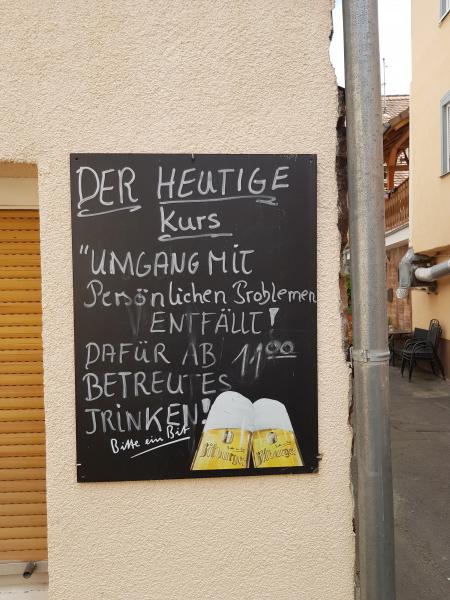 DER HEUTIGE
Kurs
"UMGANG MIT
Persönlichen Problemen
ENTFÄLLT!
DAFÜR AB 11⁰⁰
BETREUTES
TRINKEN!
Bitte ein Bit
Bitburger Bitburger